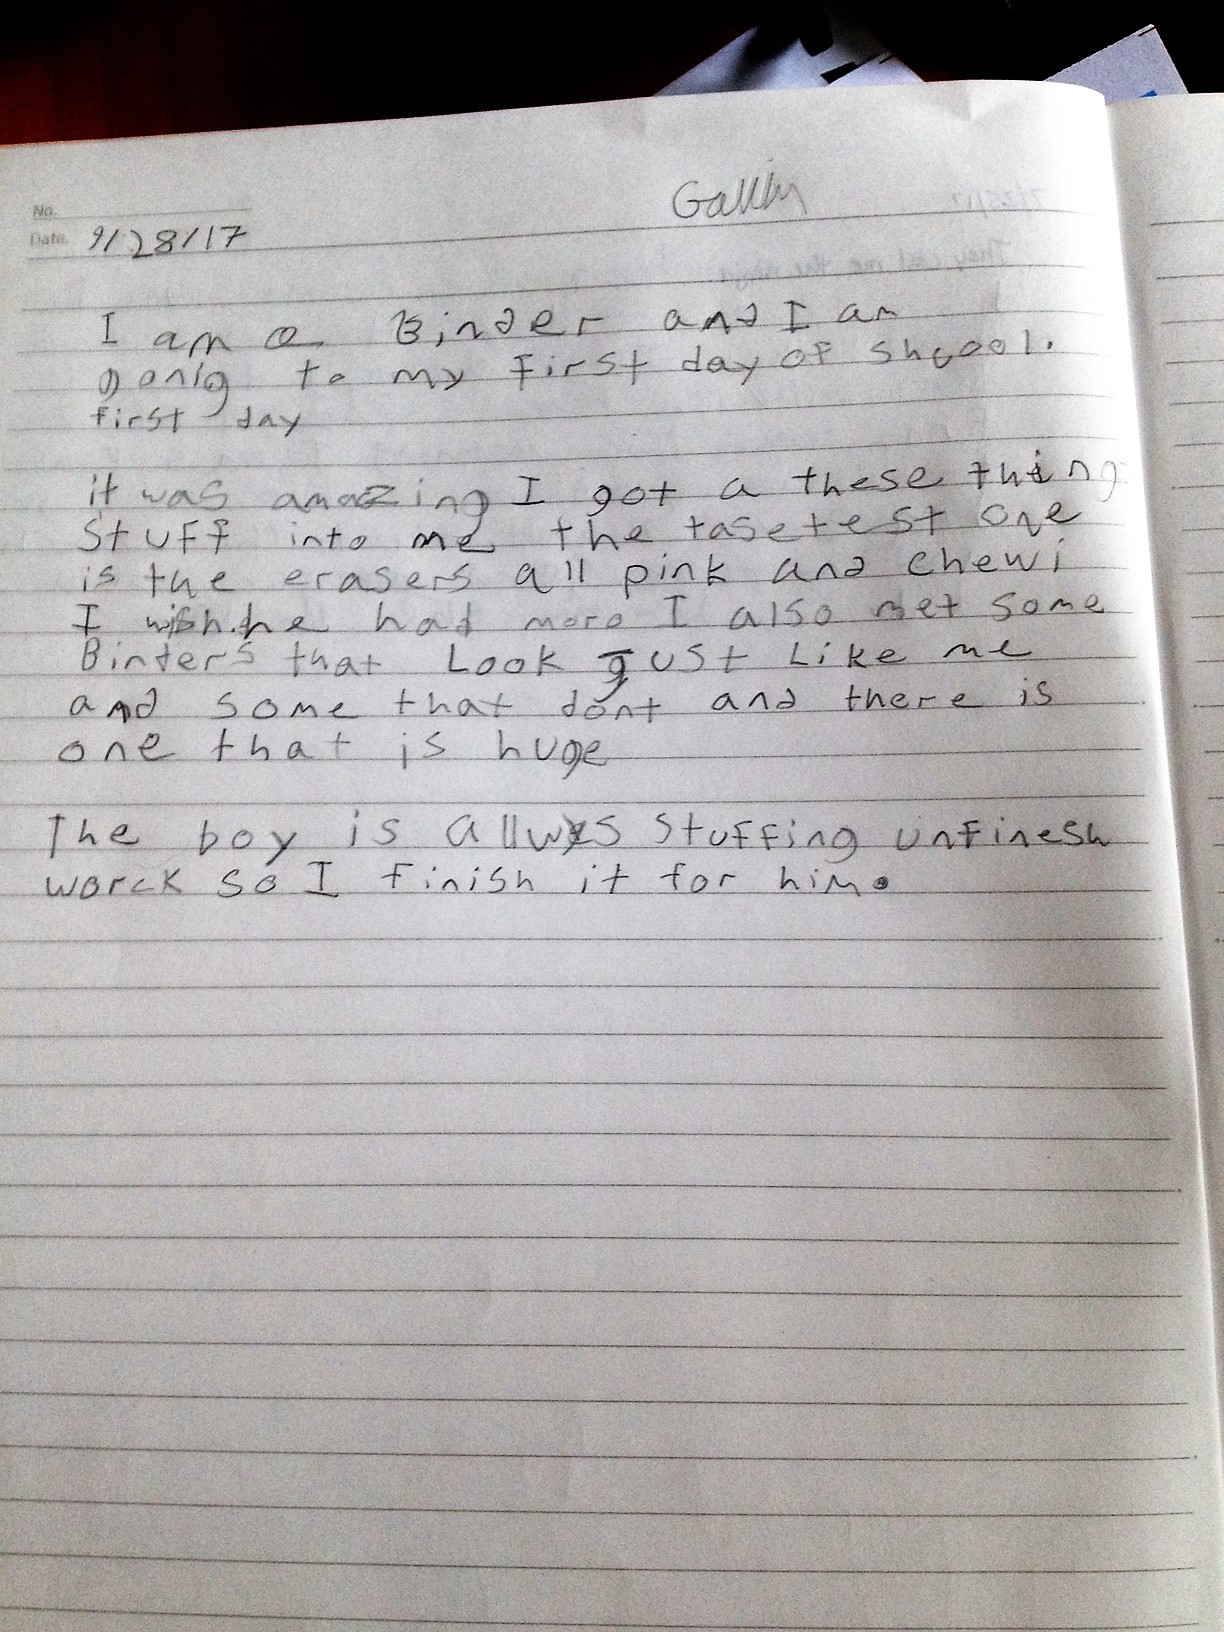 No.
Date. 9/28/17
I am a Binder and I am
gonig to my first day of shcool.
first day
it was amazing I got a these thing
stuff into me the tasetest one
is the erasers all pink and chewi
I wish he had more I also met some
Binters that Look gust Like me
and some that dont and there is
one that is huge
The boy is allwys stuffing unfinesh
worck so I finish it for him.